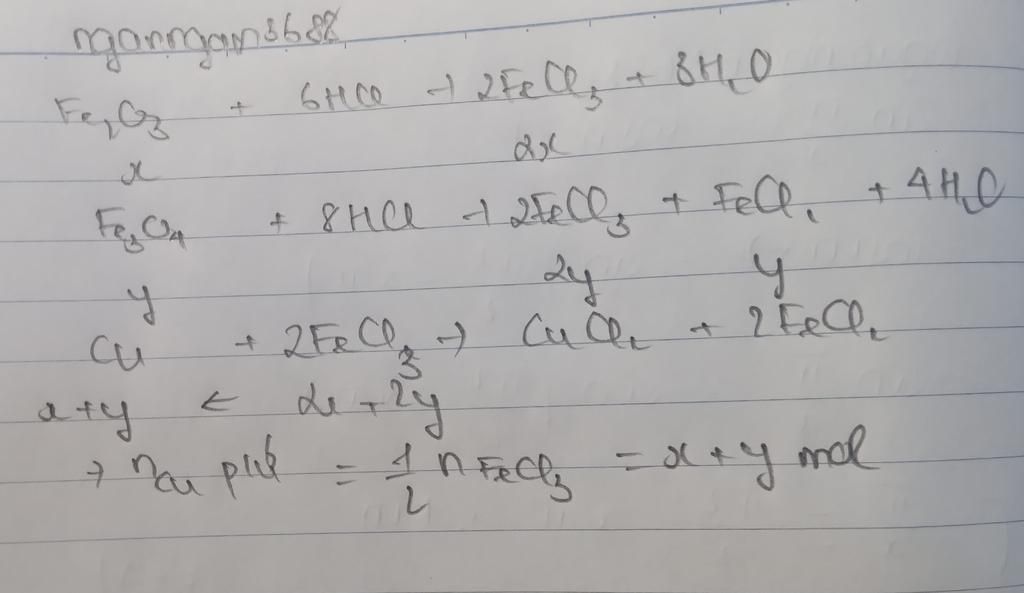 nganngann3688
Fe₂O₃ + 6HCl → 2FeCl₃ + 3H₂O
x 2x
Fe₃O₄ + 8HCl → 2FeCl₃ + FeCl₂ + 4H₂O
y 2y y
Cu + 2FeCl₃ → CuCl₂ + 2FeCl₂
x+y ← 2x + 2y
→ nCu pứ = 1/2 nFeCl₃ = x + y mol